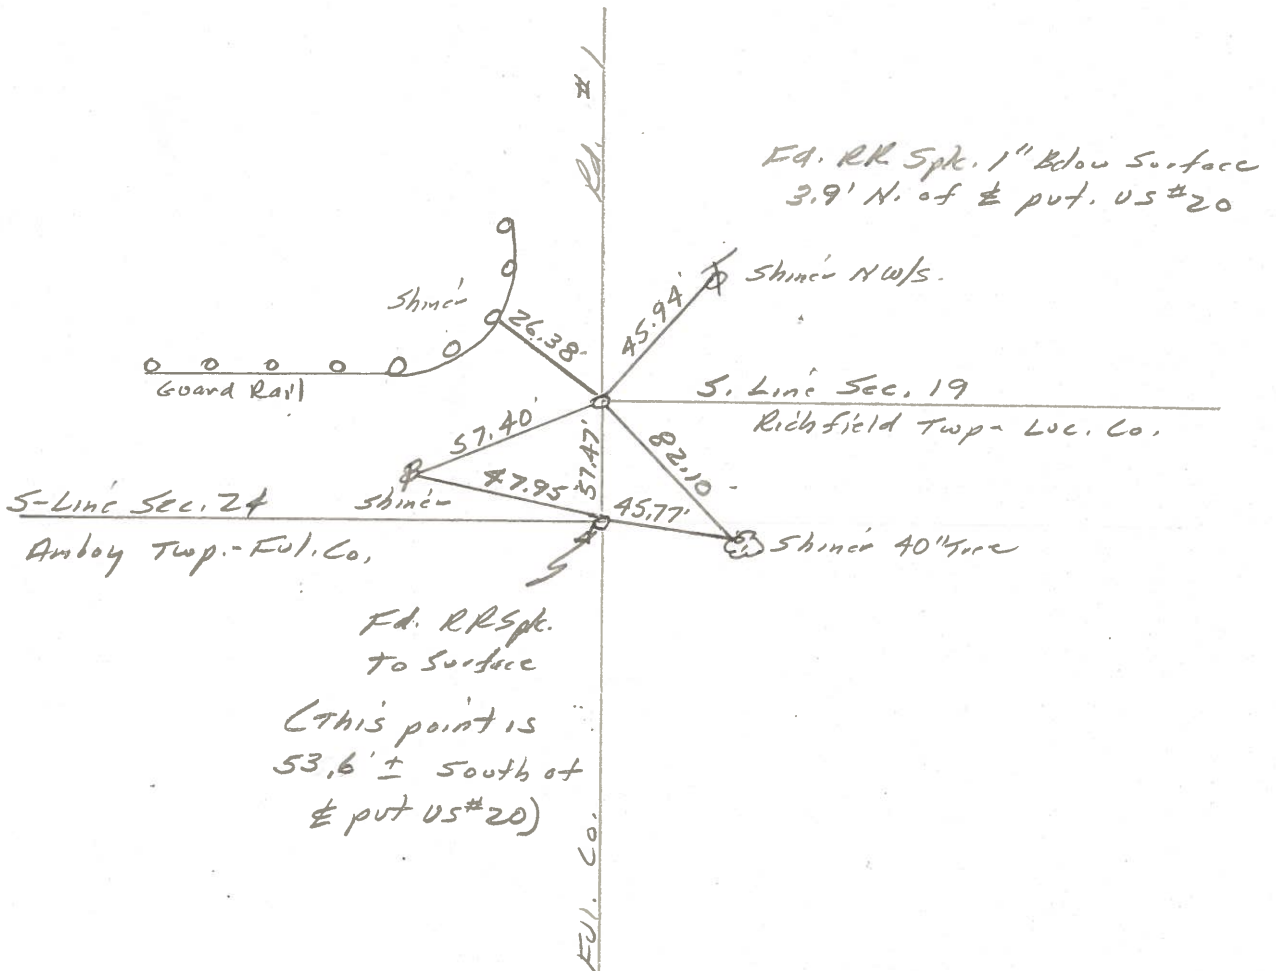 Rd. # 1
Fd. RR Spk. 1" Below Surface
3.9' N. of ℄ pvt. US #20
Shiner NW/S.
Shiner
26.38'
45.94'
Guard Rail
S. Line Sec. 19
Richfield Twp- Luc. Co.
57.40'
57.47'
82.10
47.95'
45.77'
S-Line Sec. 24
Shiner
Amboy Twp.- Ful. Co.
Shiner 40" Tree
Fd. RR Spk.
To Surface
(This point is
53.6' ± South of
℄ pvt US #20)
Ful. Co.